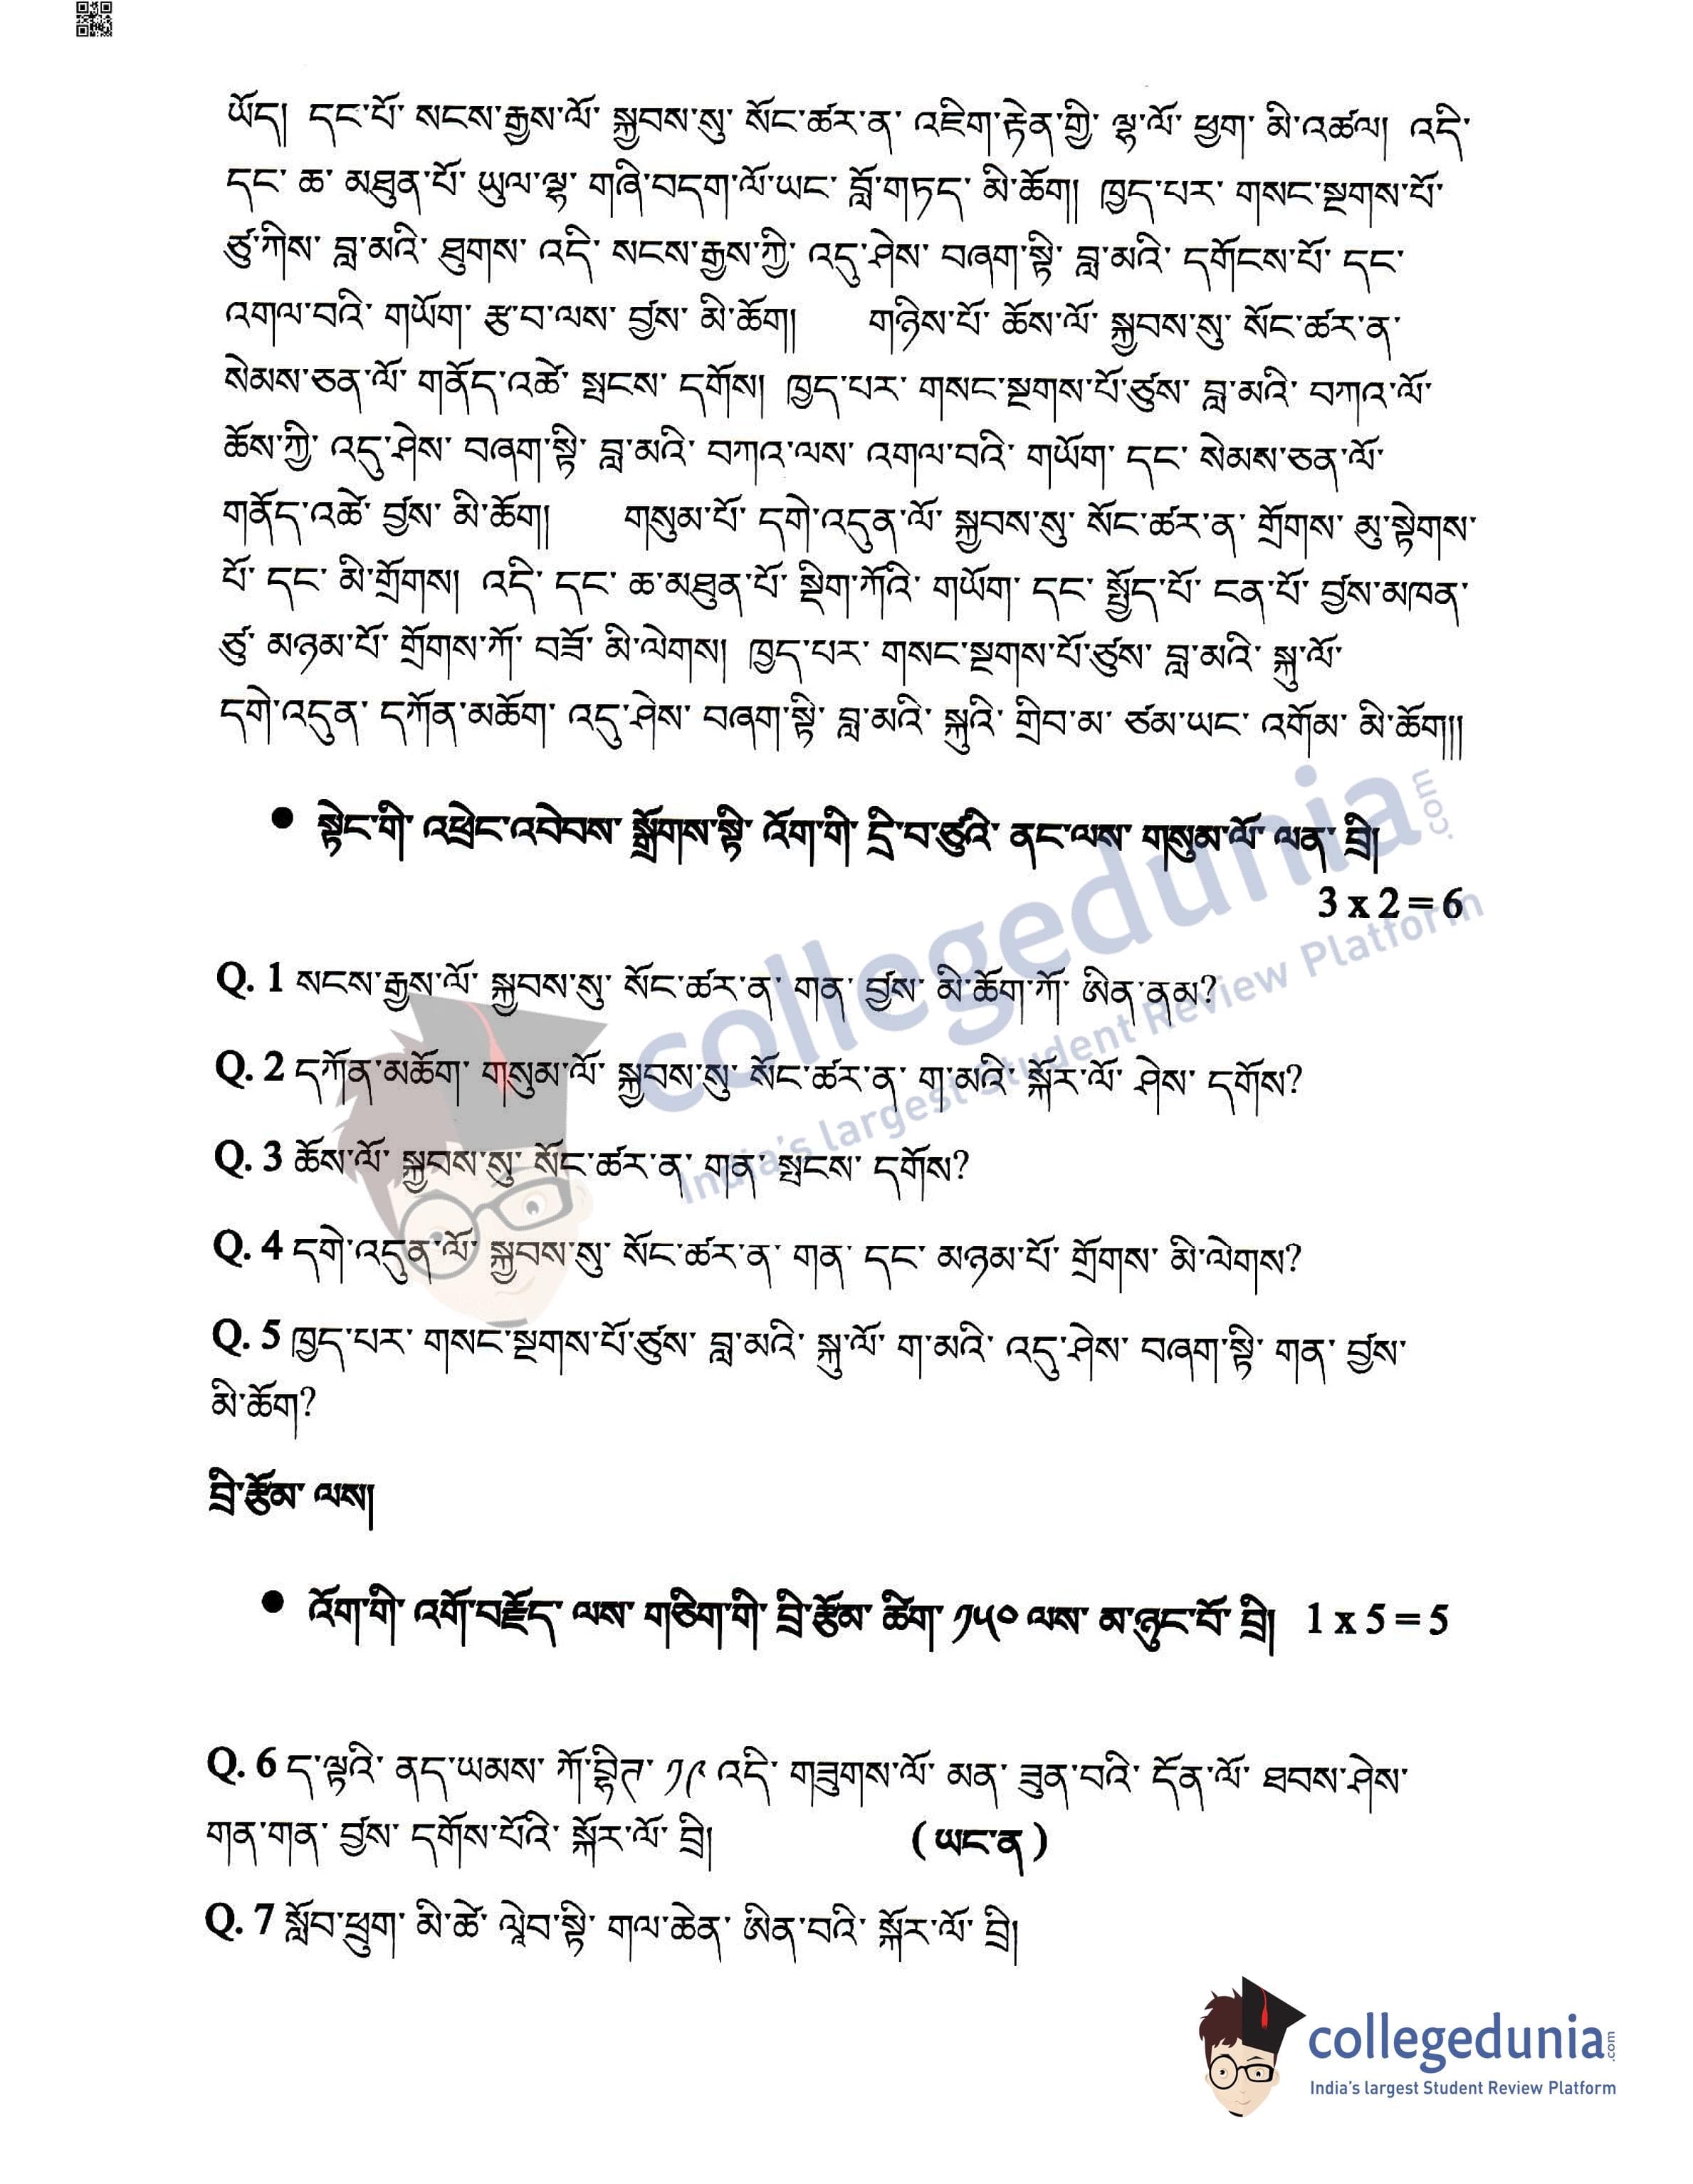 ཡོད། དང་པོ་ སངས་རྒྱས་ལོ་ སྐྱབས་སུ་ སོང་ཚར་ན་ འཇིག་རྟེན་གྱི་ ལྷ་ལོ་ ཕྱག་ མི་འཚལ། འདི་
དང་ ཆ་ མཐུན་པོ་ ཡུལ་ལྷ་ གཞི་བདག་ལོ་ཡང་ བློ་གཏད་ མི་ཆོག། ཁྱད་པར་ གསང་སྔགས་པོ་
ཙུ་ཀིས་ བླ་མའི་ ཐུགས་ འདི་ སངས་རྒྱས་ཀྱི་ འདུ་ཤེས་ བཞག་སྟི་ བླ་མའི་ དགོངས་པོ་ དང་
འགལ་བའི་ གཡོག་ རྩ་བ་ལས་ བྱས་ མི་ཆོག། གཉིས་པོ་ ཆོས་ལོ་ སྐྱབས་སུ་ སོང་ཚར་ན་
སེམས་ཅན་ལོ་ གནོད་འཚེ་ སྤངས་ དགོས། ཁྱད་པར་ གསང་སྔགས་པོ་ཙུས་ བླ་མའི་ བཀའ་ལོ་
ཆོས་ཀྱི་ འདུ་ཤེས་ བཞག་སྟི་ བླ་མའི་ བཀའ་ལས་ འགལ་བའི་ གཡོག་ དང་ སེམས་ཅན་ལོ་
གནོད་འཚེ་ བྱས་ མི་ཆོག། གསུམ་པོ་ དགེ་འདུན་ལོ་ སྐྱབས་སུ་ སོང་ཚར་ན་ གྲོགས་ མུ་སྟེགས་
པོ་ དང་ མི་གྲོགས། འདི་ དང་ ཆ་མཐུན་པོ་ སྡིག་ཀོའི་ གཡོག་ དང་ སྤྱོད་པོ་ ངན་པོ་ བྱས་མཁན་
ཙུ་ མཉམ་པོ་ གྲོགས་ཀོ་ བཟོ་ མི་ལེགས། ཁྱད་པར་ གསང་སྔགས་པོ་ཙུས་ བླ་མའི་ སྐུ་ལོ་
དགེ་འདུན་ དཀོན་མཆོག་ འདུ་ཤེས་ བཞག་སྟི་ བླ་མའི་ སྐུའི་ གྲིབ་མ་ ཙམ་ཡང་ འགོམ་ མི་ཆོག།།
● སྟེང་གི་ འཕྲེང་འབེབས་ སྒྲོགས་སྟི་ འོག་གི་ དྲི་བ་ཙུའི་ ནང་ལས་ གསུམ་ལོ་ ལན་ བྲི།
3 x 2 = 6
Q. 1 སངས་རྒྱས་ལོ་ སྐྱབས་སུ་ སོང་ཚར་ན་ གན་ བྱས་ མི་ཆོག་ཀོ་ ཨིན་ནམ?
Q. 2 དཀོན་མཆོག་ གསུམ་ལོ་ སྐྱབས་སུ་ སོང་ཚར་ན་ ག་མའི་ སྐོར་ལོ་ ཤེས་ དགོས?
Q. 3 ཆོས་ལོ་ སྐྱབས་སུ་ སོང་ཚར་ན་ གན་ སྤངས་ དགོས?
Q. 4 དགེ་འདུན་ལོ་ སྐྱབས་སུ་ སོང་ཚར་ན་ གན་ དང་ མཉམ་པོ་ གྲོགས་ མི་ལེགས?
Q. 5 ཁྱད་པར་ གསང་སྔགས་པོ་ཙུས་ བླ་མའི་ སྐུ་ལོ་ ག་མའི་ འདུ་ཤེས་ བཞག་སྟི་ གན་ བྱས་
མི་ཆོག?
བྲི་རྩོམ་ ལས།
● འོག་གི་ འགོ་བརྗོད་ ལས་ གཅིག་གི་ བྲི་རྩོམ་ ཚིག་ ༡༥༠ ལས་ མ་ཉུང་བོ་ བྲི། 1 x 5 = 5
Q. 6 ད་ལྟའི་ ནད་ཡམས་ ཀོ་བྷིཊ་ ༡༩ འདི་ གཟུགས་ལོ་ མན་ ཟུན་བའི་ དོན་ལོ་ ཐབས་ཤེས་
གན་གན་ བྱས་ དགོས་པོའི་ སྐོར་ལོ་ བྲི། ( ཡང་ན )
Q. 7 སློབ་ཕྲུག་ མི་ཚེ་ ལཱེབ་སྟི་ གལ་ཆེན་ ཨིན་བའི་ སྐོར་ལོ་ བྲི།
collegedunia.com
India's largest Student Review Platform
collegedunia.com
India's largest Student Review Platform